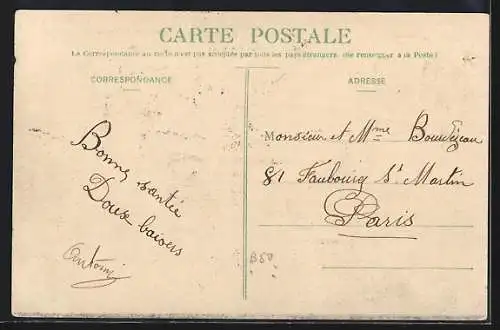 CARTE POSTALE
La Correspondance au recto n'est pas acceptée par tous les pays étrangers. (Se renseigner à la Poste)
CORRESPONDANCE
ADRESSE
Bonne santée
Doux baisers
Antony
Monsieur et Mme Bourdejeau
81 Faubourg St Martin
Paris
B50